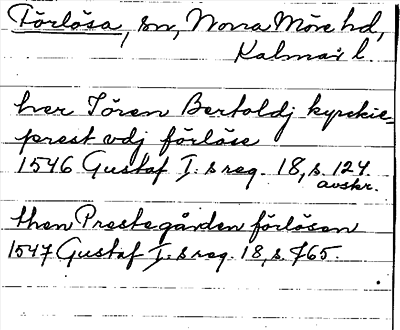 Förlösa, sn, Norra Möre hd,
Kalmar l.
her Sören Bertoldj kyrckie=
prest vdj förlöse
1546 Gustaf I:s reg. 18, s. 124.
avskr.
then Prestegården förlösen
1547 Gustaf I:s reg. 18, s. 765.